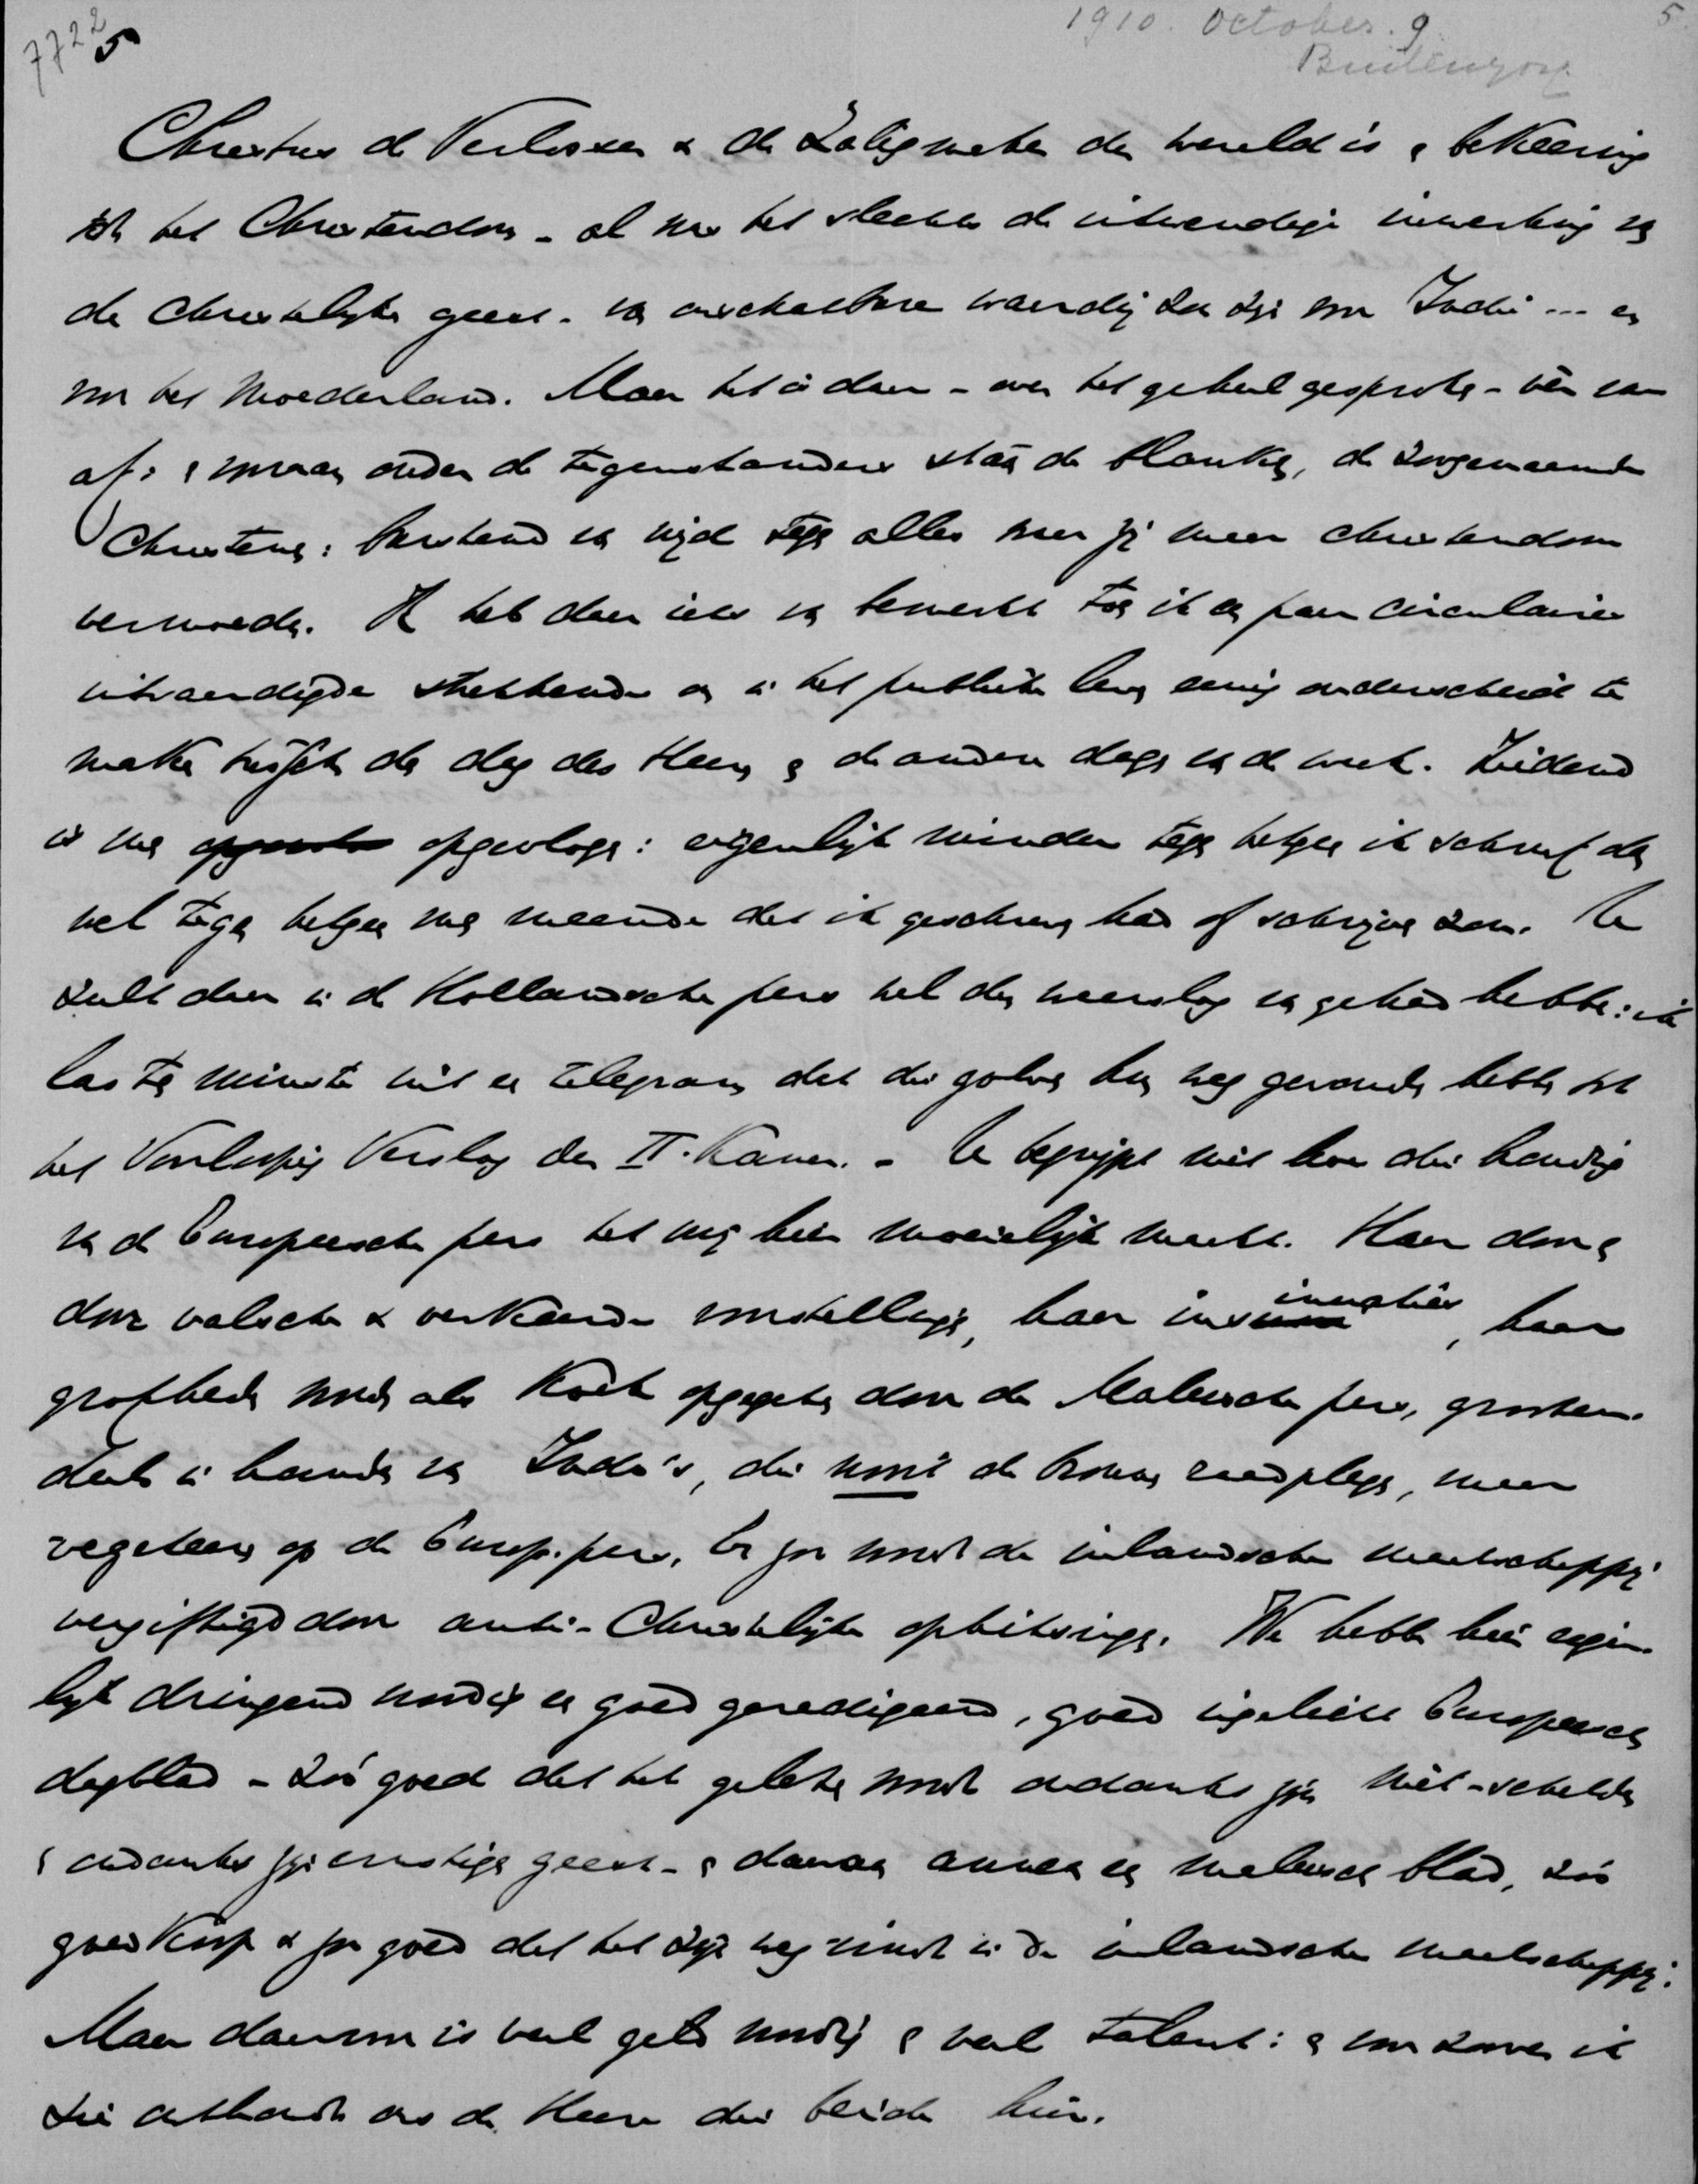 7722
5
1910. October. 9.
Buitenzorg
5
Christus de Verlosser & de Zaligmaker der wereld is & bekeering
tot het Christendom - al was het slechts de uitwendige inwerking van
de Christelijke geest - van onschatbare waardij zou zijn voor Indië ... en
voor het Moederland. Maar het is daar - over het geheel gesproken - vèr van
af: & vooraan onder de tegenstanders staan de blanken, de zoogenaamde
Christenen: barstend van nijd tegen alles waar zij maar christendom
vermoeden. Ik heb daar iets van bemerkt toen ik een paar circulaires
uitvaardigde strekkende om in het publieke leven eenig onderscheid te
maken tusschen den dag des Heeren & de andere dagen van de week. Ziedend
is men opgevlogen: eigenlijk minder tegen hetgeen ik schreef dan
wel tegen hetgeen men meende dat ik geschreven had of schrijven zou. U
zult daar in de Hollandsche pers wel den weerslag van gehad hebben: ik
las ten minste uit een telegram dat die golven hun weg gevonden hebben tot
het Voorloopig Verslag der II. Kamer. - U begrijpt niet hoe die houding
van de Europeesche pers het mij hier moeielijk maakt. Haar door &
door valsche & verkeerde voorstellingen, haar insinuaties, haar
grofheden worden als koek opgegeten door de Maleische pers, grooten-
deels in handen van Indo's, die nooit de bronnen raadplegen, maar
vegeteeren op de Europ. pers. En zoo wordt de inlandsche maatschappij
vergiftigd door anti-Christelijke ophitsingen. We hebben hier eigen-
lijk dringend noodig een goed geredigeerd, goed ingelicht Europeesch
dagblad - zóó goed dat het gelezen wordt ondanks zijn niet-schelden
& ondanks zijn ernstigen geest - & daarnaast een maleisch blad, zóó
goedkoop & zoo goed dat het zijn weg vindt in de inlandsche maatschappij.
Maar daarvoor is veel geld noodig & veel talent: & voor zoover ik
zie onthoudt ons de Heere die beide hier.